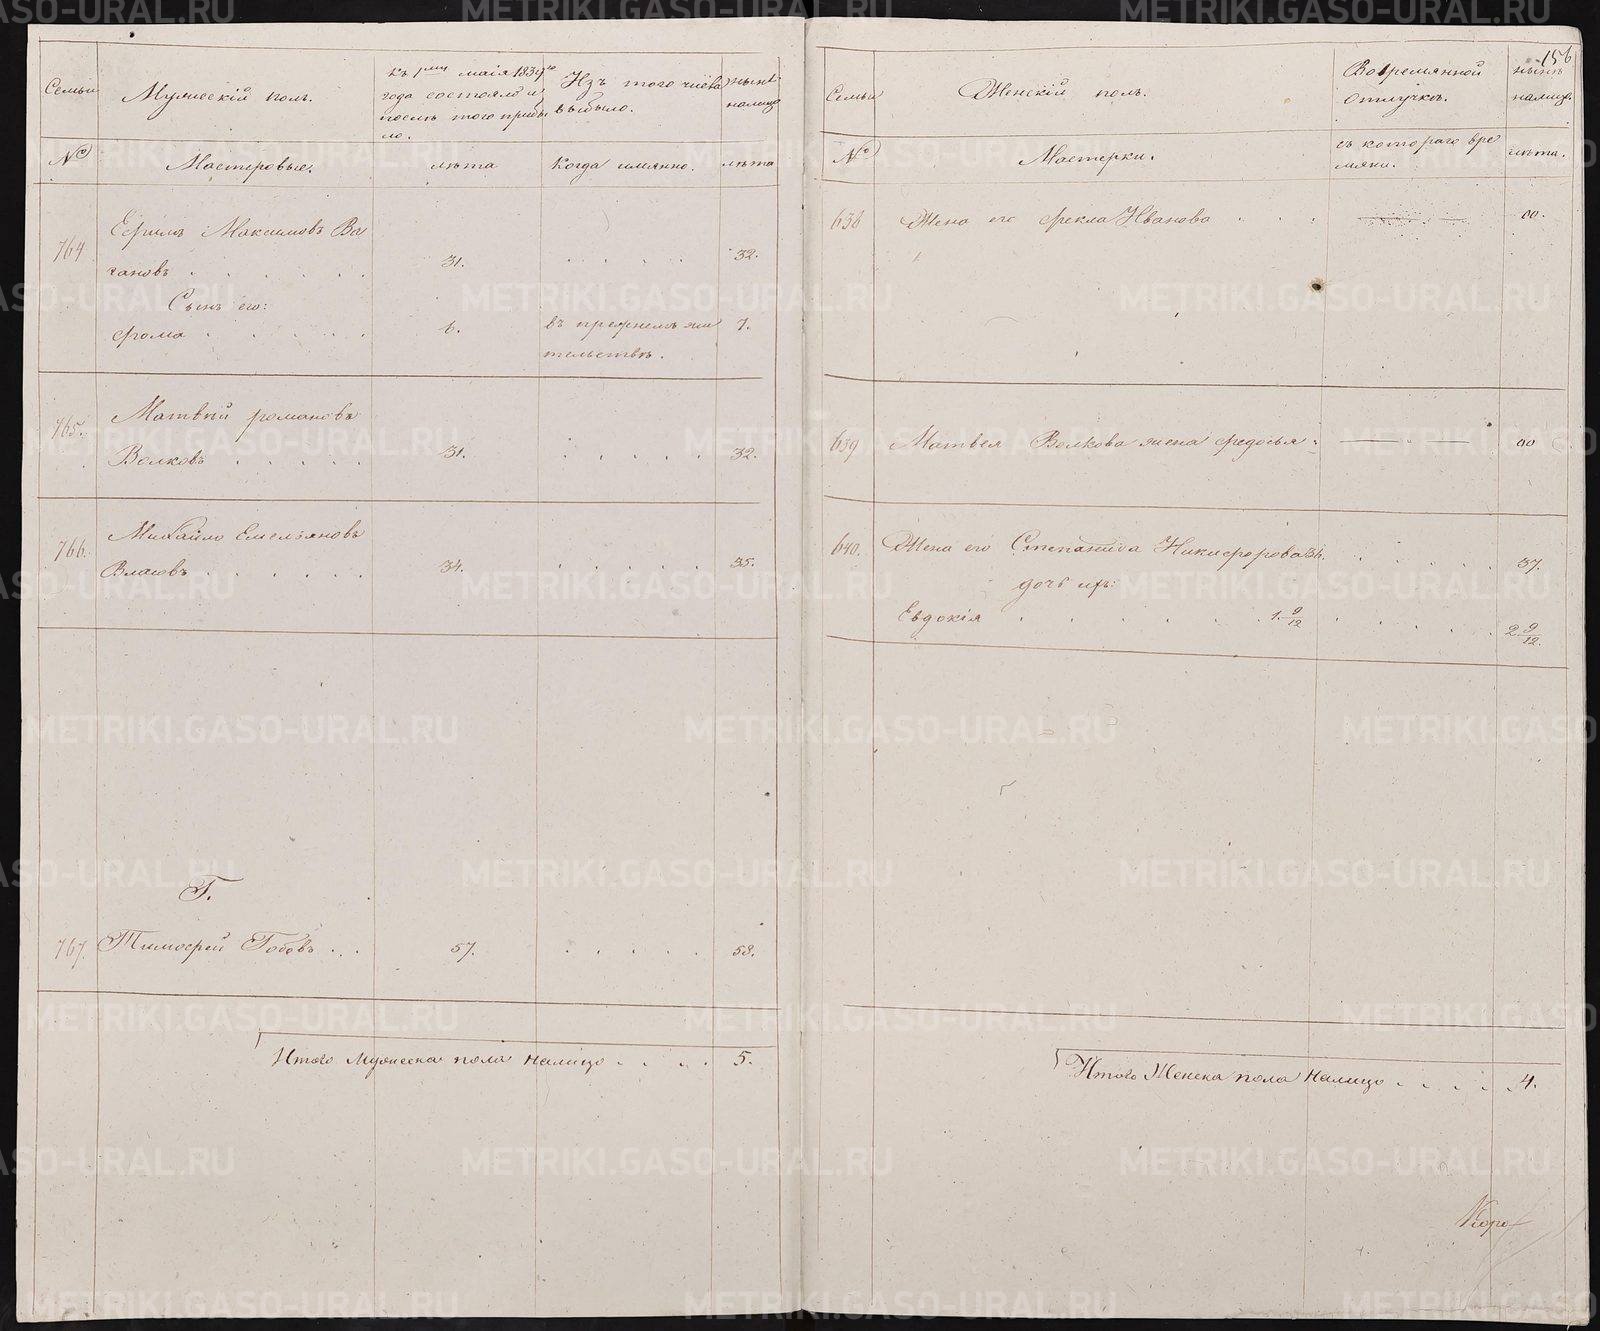 156
Семьи
Мужескій полъ.
Къ 1му маія 1834го
года состояло и
послѣ того прибы
ло.
Изъ того числа
выбыло.
нынѣ
налицо
№
Мастеровые.
лѣта
Когда имянно.
лѣта
764
Ефимъ Максимовъ Ва
гановъ . . . . . .
31.
. . . .
32.
Сынъ его:
Фома . . . . . .
6.
въ прежнемъ жи
тельствѣ.
7.
765.
Матвѣй романовъ
Волковъ . . . . .
31.
. . . . . .
32.
766.
Михайло Емельяновъ
Власовъ . . . . . .
34.
. . . . . .
35.
Г.
767.
Тимофей Гобовъ . . .
57.
. . . . .
58.
Итого Мужеска пола налицо . . . .
5.
Семьи
Женскій полъ.
Во времянной
отлучкѣ.
нынѣ
налицо.
№
Мастерки.
съ котораго вре
мяни.
лѣта.
638
Жена его Фекла Иванова . . .
00.
639
Матвея Волкова жена Федосья
00
640.
Жена его Степанида Никифорова 36.
. . . . .
37.
дочь ихъ:
Евдокія . . . . . . 1. 9/12
. . . . .
2 9/12.
Итого Женска пола налицо . . . . .
4.
METRIKI.GASO-URAL.RU